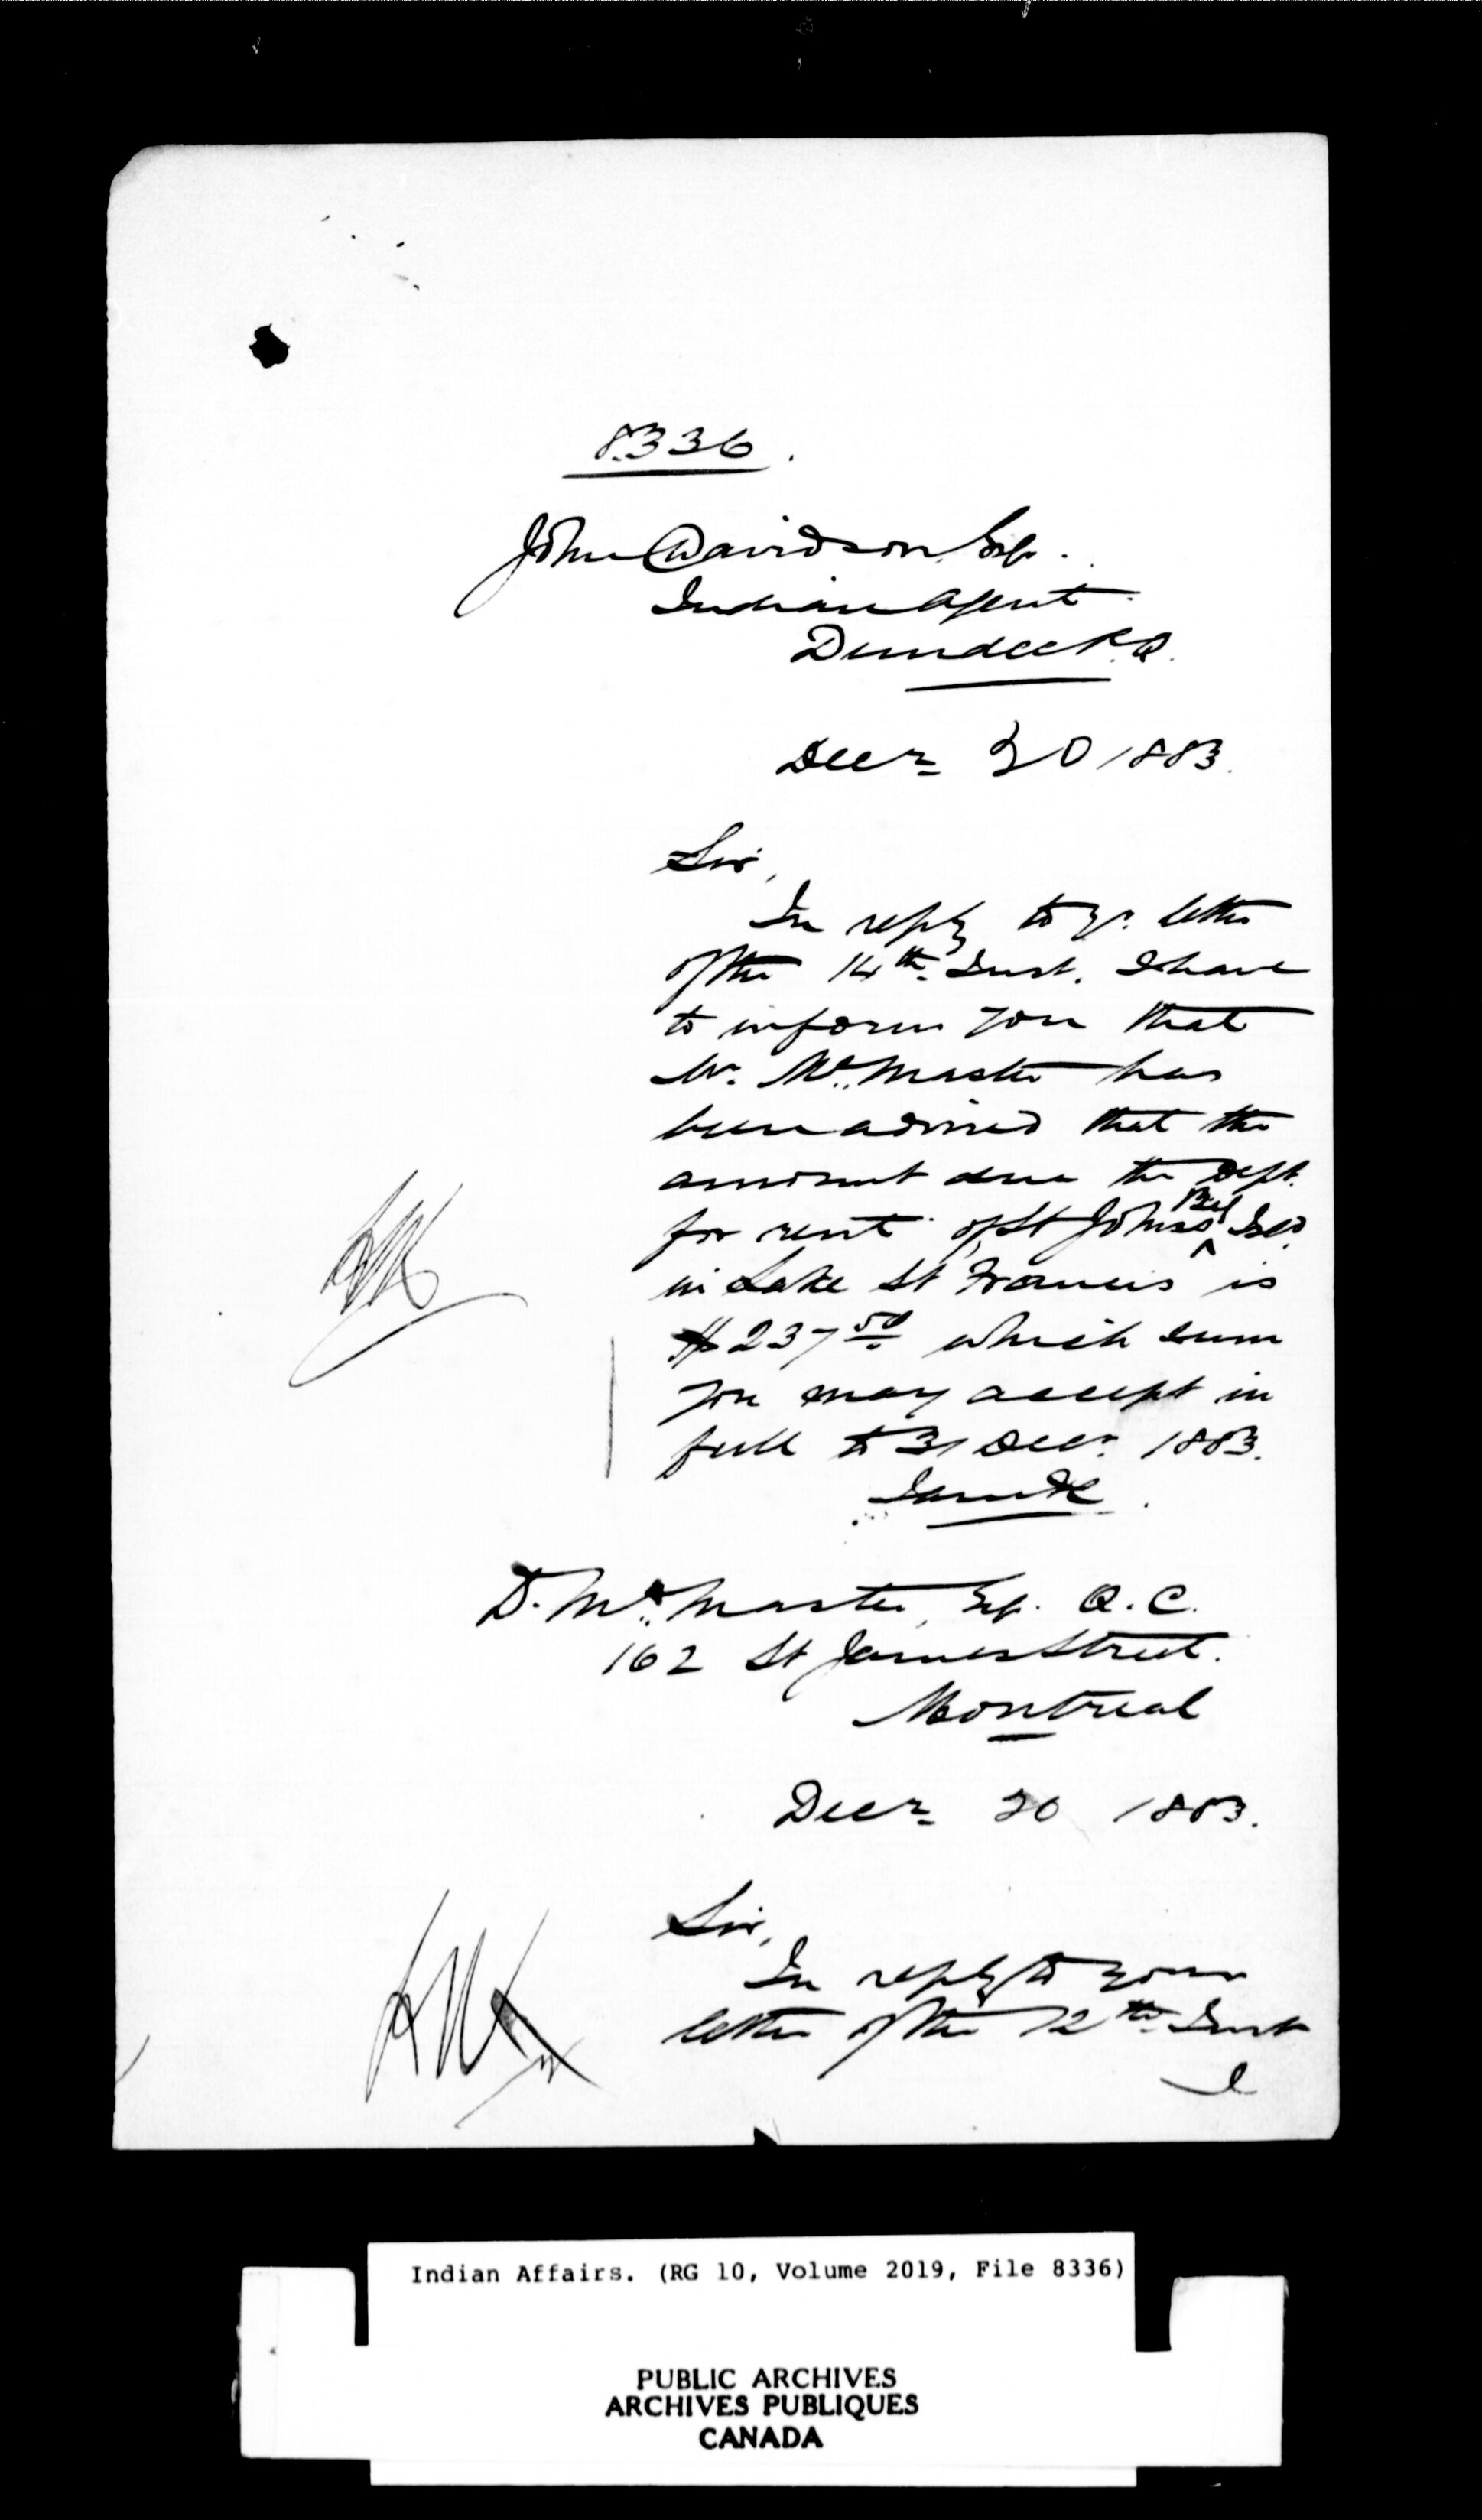 8336.
John Davidson, Esq.
Indian Agent
Dundee P.Q.
Decr 20 1883.
Sir,
In reply to yr. letter
of the 14th Inst. I have
to inform you that
Mr. McMaster has
been advised that the
amount due the Dept.
for rent of St Johns Isld.
in Lake St Francis is
$237 50 which sum
you may accept in
full to 31 Decr. 1883.
D. McMaster, Esq. Q.C.
162 St James Street.
Montreal
Decr 20 1883.
Sir,
In reply to your
letter of the 12th Inst
I
Indian Affairs. (RG 10, Volume 2019, File 8336)
PUBLIC ARCHIVES
ARCHIVES PUBLIQUES
CANADA